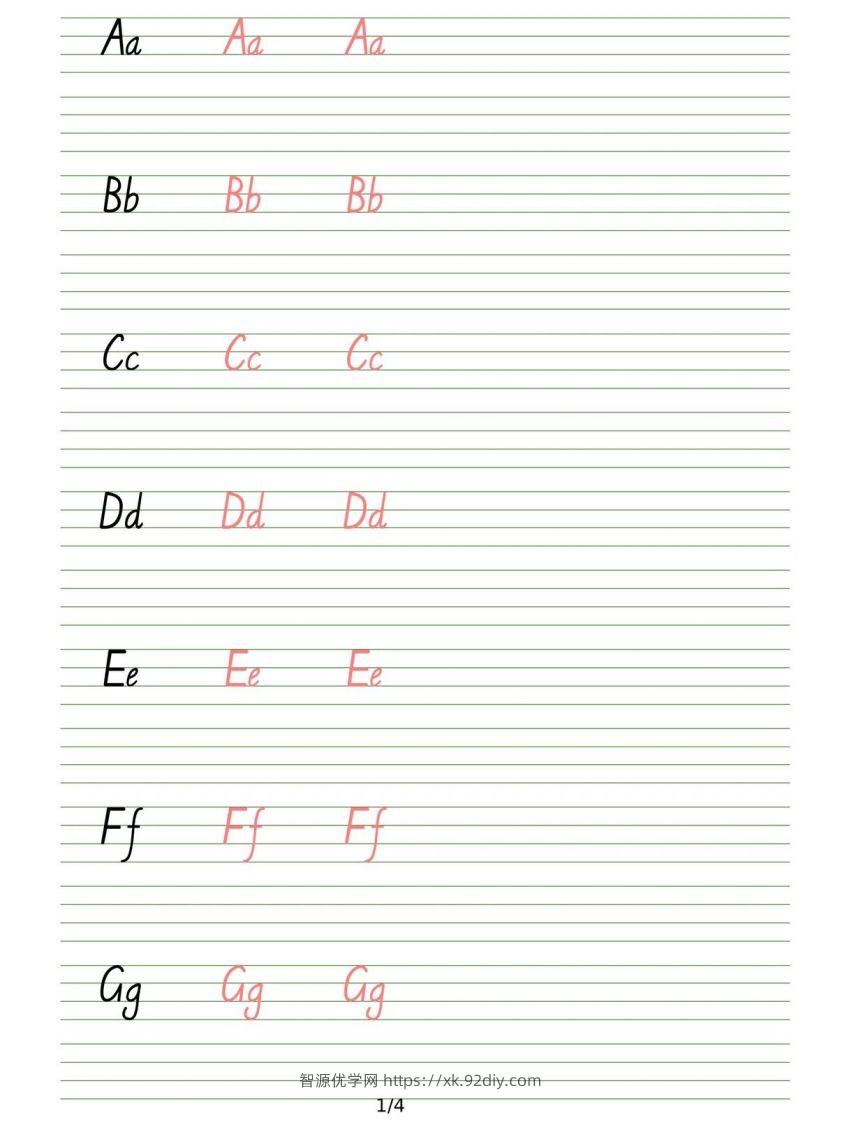 Aa Aa Aa
Bb Bb Bb
Cc Cc Cc
Dd Dd Dd
Ee Ee Ee
Ff Ff Ff
Gg Gg Gg
智源优学网 https://xk.92diy.com
1/4